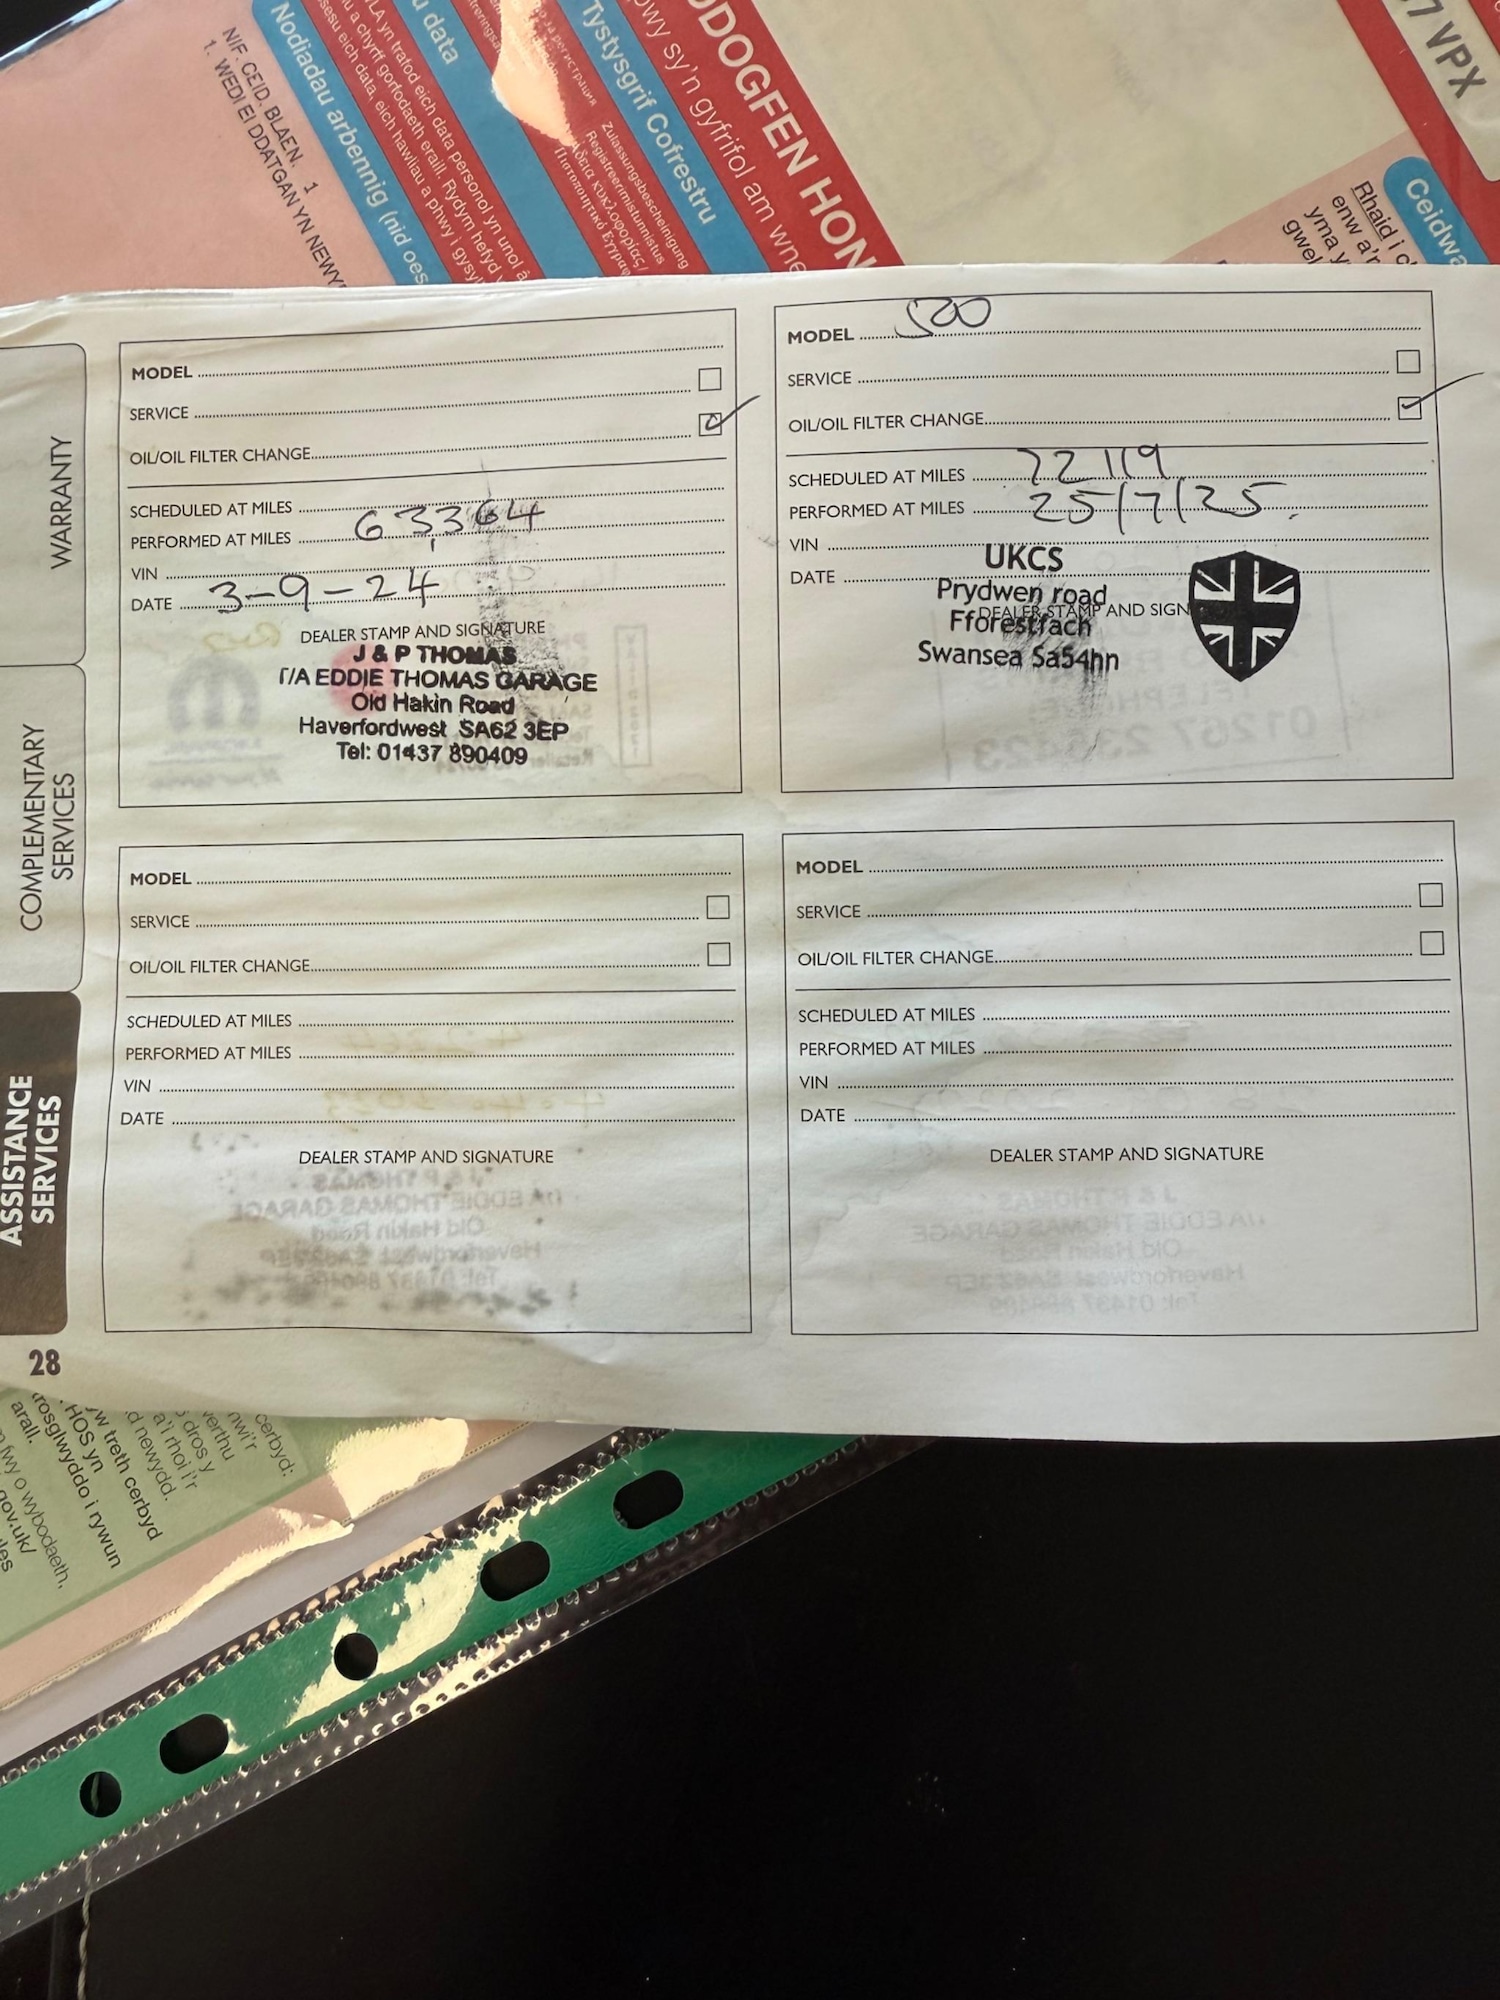 NIF. CEID. BLAEN. 1
1. WEDI EI DDATGAN YN NEWY
Nodiadau arbennig (nid oes
sesu eich data, eich hawliau a phwy i gysyl
u a chyrff gorfodaeth eraill. Rydym hefyd
LA yn trafod eich data personol yn unol â
u data
Tystysgrif Cofrestru
Zulassungsbescheinigung
Registreerimistunnistus
Άδεια κυκλοφορίας/
pwy sy'n gyfrifol am wne
DDOGFEN HON
7 VPX
Ceidwa
Rhaid i c
enw a'r
yma y
gwel
WARRANTY
COMPLEMENTARY
SERVICES
ASSISTANCE
SERVICES
28
MODEL
SERVICE
OIL/OIL FILTER CHANGE
SCHEDULED AT MILES
PERFORMED AT MILES 63,364
VIN
DATE 3-9-24
DEALER STAMP AND SIGNATURE
J & P THOMAS
T/A EDDIE THOMAS GARAGE
Old Hakin Road
Haverfordwest SA62 3EP
Tel: 01437 890409
MODEL 500
SERVICE
OIL/OIL FILTER CHANGE
SCHEDULED AT MILES 72119
PERFORMED AT MILES 25/7/25.
VIN
DATE
DEALER STAMP AND SIGN
UKCS
Prydwen road
Fforestfach
Swansea Sa54hn
MODEL
SERVICE
OIL/OIL FILTER CHANGE
SCHEDULED AT MILES
PERFORMED AT MILES
VIN
DATE
DEALER STAMP AND SIGNATURE
MODEL
SERVICE
OIL/OIL FILTER CHANGE
SCHEDULED AT MILES
PERFORMED AT MILES
VIN
DATE
DEALER STAMP AND SIGNATURE
cerbyd:
nwi'r
verthu
dros y
a'i rhoi i'r
d newydd.
yw treth cerbyd
HOS yn
rosglwyddo i rywun
arall.
fwy o wybodaeth,
gov.uk/